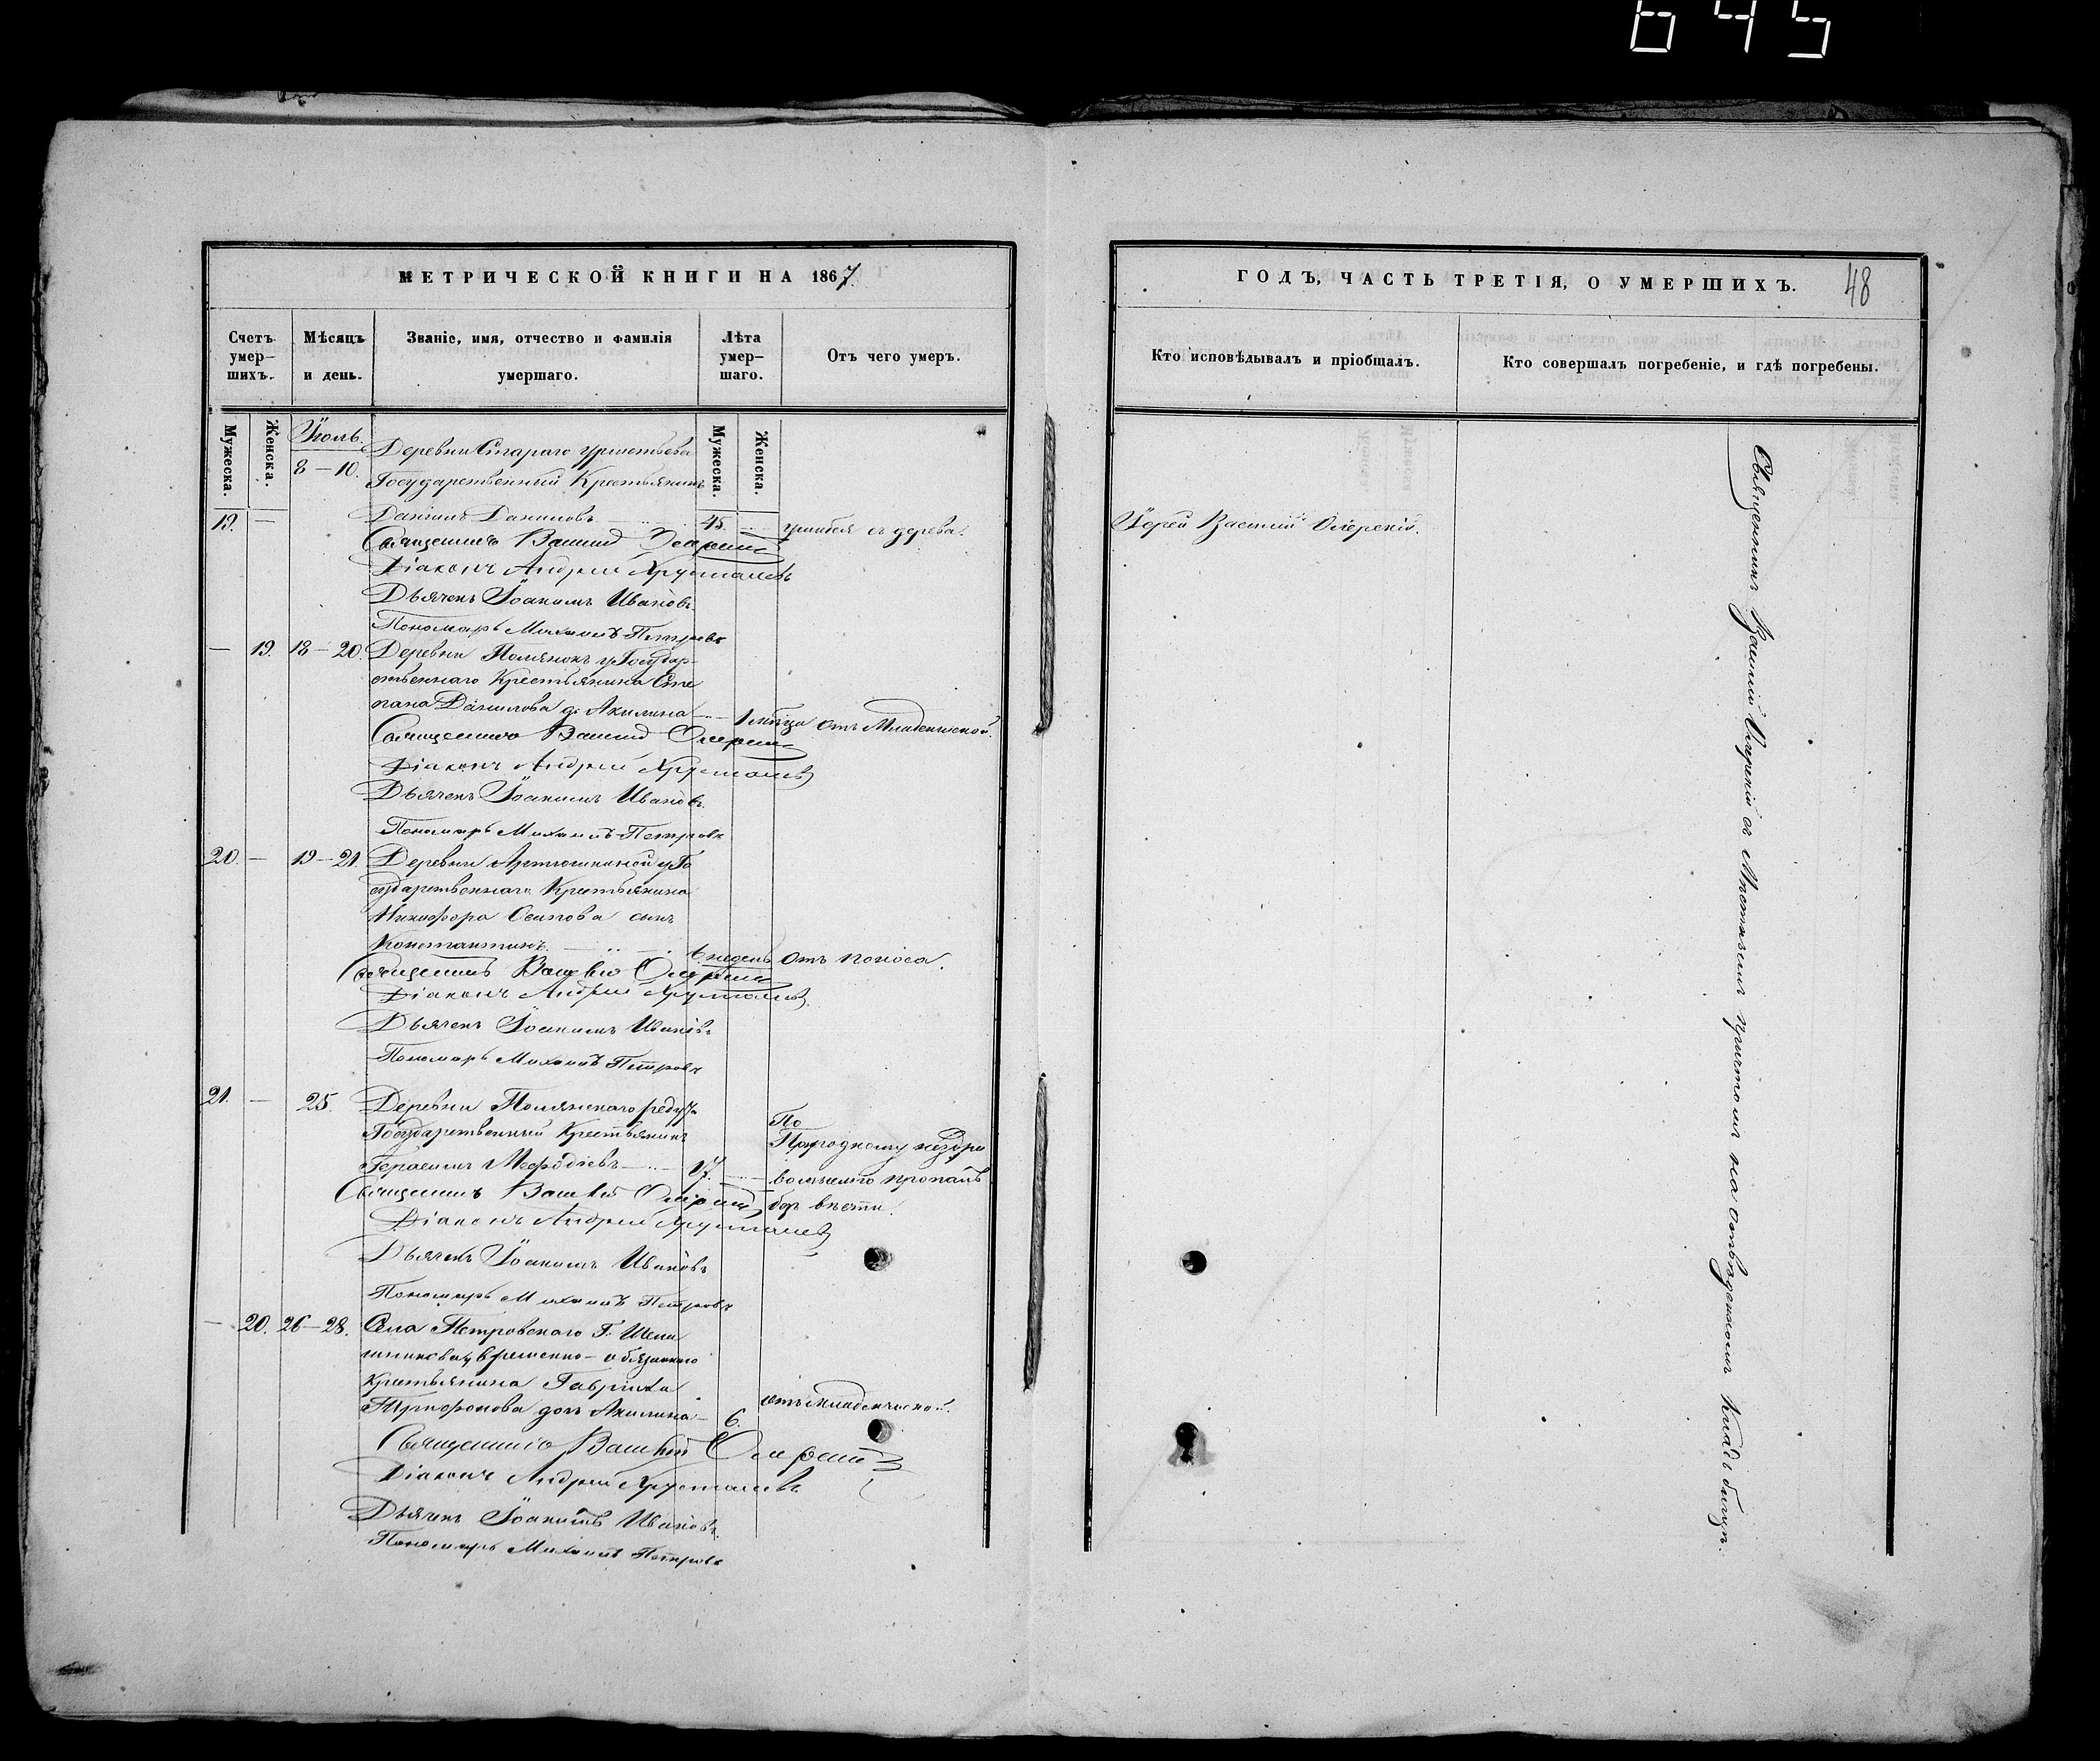 645
МЕТРИЧЕСКОЙ КНИГИ НА 1867.
Счетъ умер-шихъ.
Мѣсяцъ и день.
Званіе, имя, отчество и фамилія умершаго.
Лѣта умер-шаго.
Отъ чего умеръ.
Мужеска.
Женска.
Мужеска.
Женска.
Іюль.
8 — 10.
Деревни Стараго
Государственный Крестьянинъ
19. —
Даніилъ Даниловъ 45. ушибся съ дерева.
Священникъ Василій
Діаконъ Андрей Хрусталевъ
Дьячекъ Іоакимъ Ивановъ
Пономарь Михаилъ Петровъ
— 19. 18 — 20. Деревни Полянокъ у Государ-
ственнаго Крестьянина Сте
пана Данилова д. Акилина — 1 мѣсяца отъ Младенческой.
Священникъ Василій
Діаконъ Андрей Хрусталевъ
Дьячекъ Іоакимъ Ивановъ
Пономарь Михаилъ Петровъ
20. — 19 — 21. Деревни Артюшкиной у Го
сударственнаго Крестьянина
Никифора Осипова сынъ
Константинъ. 6 недель отъ поноса.
Священникъ Василій
Діаконъ Андрей Хрусталевъ
Дьячекъ Іоакимъ Ивановъ
Пономарь Михаилъ Петровъ
21. — 25. Деревни Полянскаго
Государственный Крестьянинъ
По
Герасимъ Меѳодіевъ — 17.
безъ вести.
Священникъ Василій
Діаконъ Андрей Хрусталевъ
Дьячекъ Іоакимъ Ивановъ
Пономарь Михаилъ Петровъ
— 20. 26 — 28. Села Петровскаго Г.
временно-обязаннаго
крестьянина Гавріила
Трифонова дочь Акилина — 6. отъ младенческой.
Священникъ Василій
Діаконъ Андрей Хрусталевъ
Дьячекъ Іоакимъ Ивановъ
Пономарь Михаилъ Петровъ
ГОДЪ, ЧАСТЬ ТРЕТІЯ, О УМЕРШИХЪ. 48
Кто исповѣдывалъ и пріобщалъ.
Кто совершалъ погребеніе, и гдѣ погребены.
Іерей Василій
Священникъ Василій съ причтомъ на отведенномъ кладбищѣ.